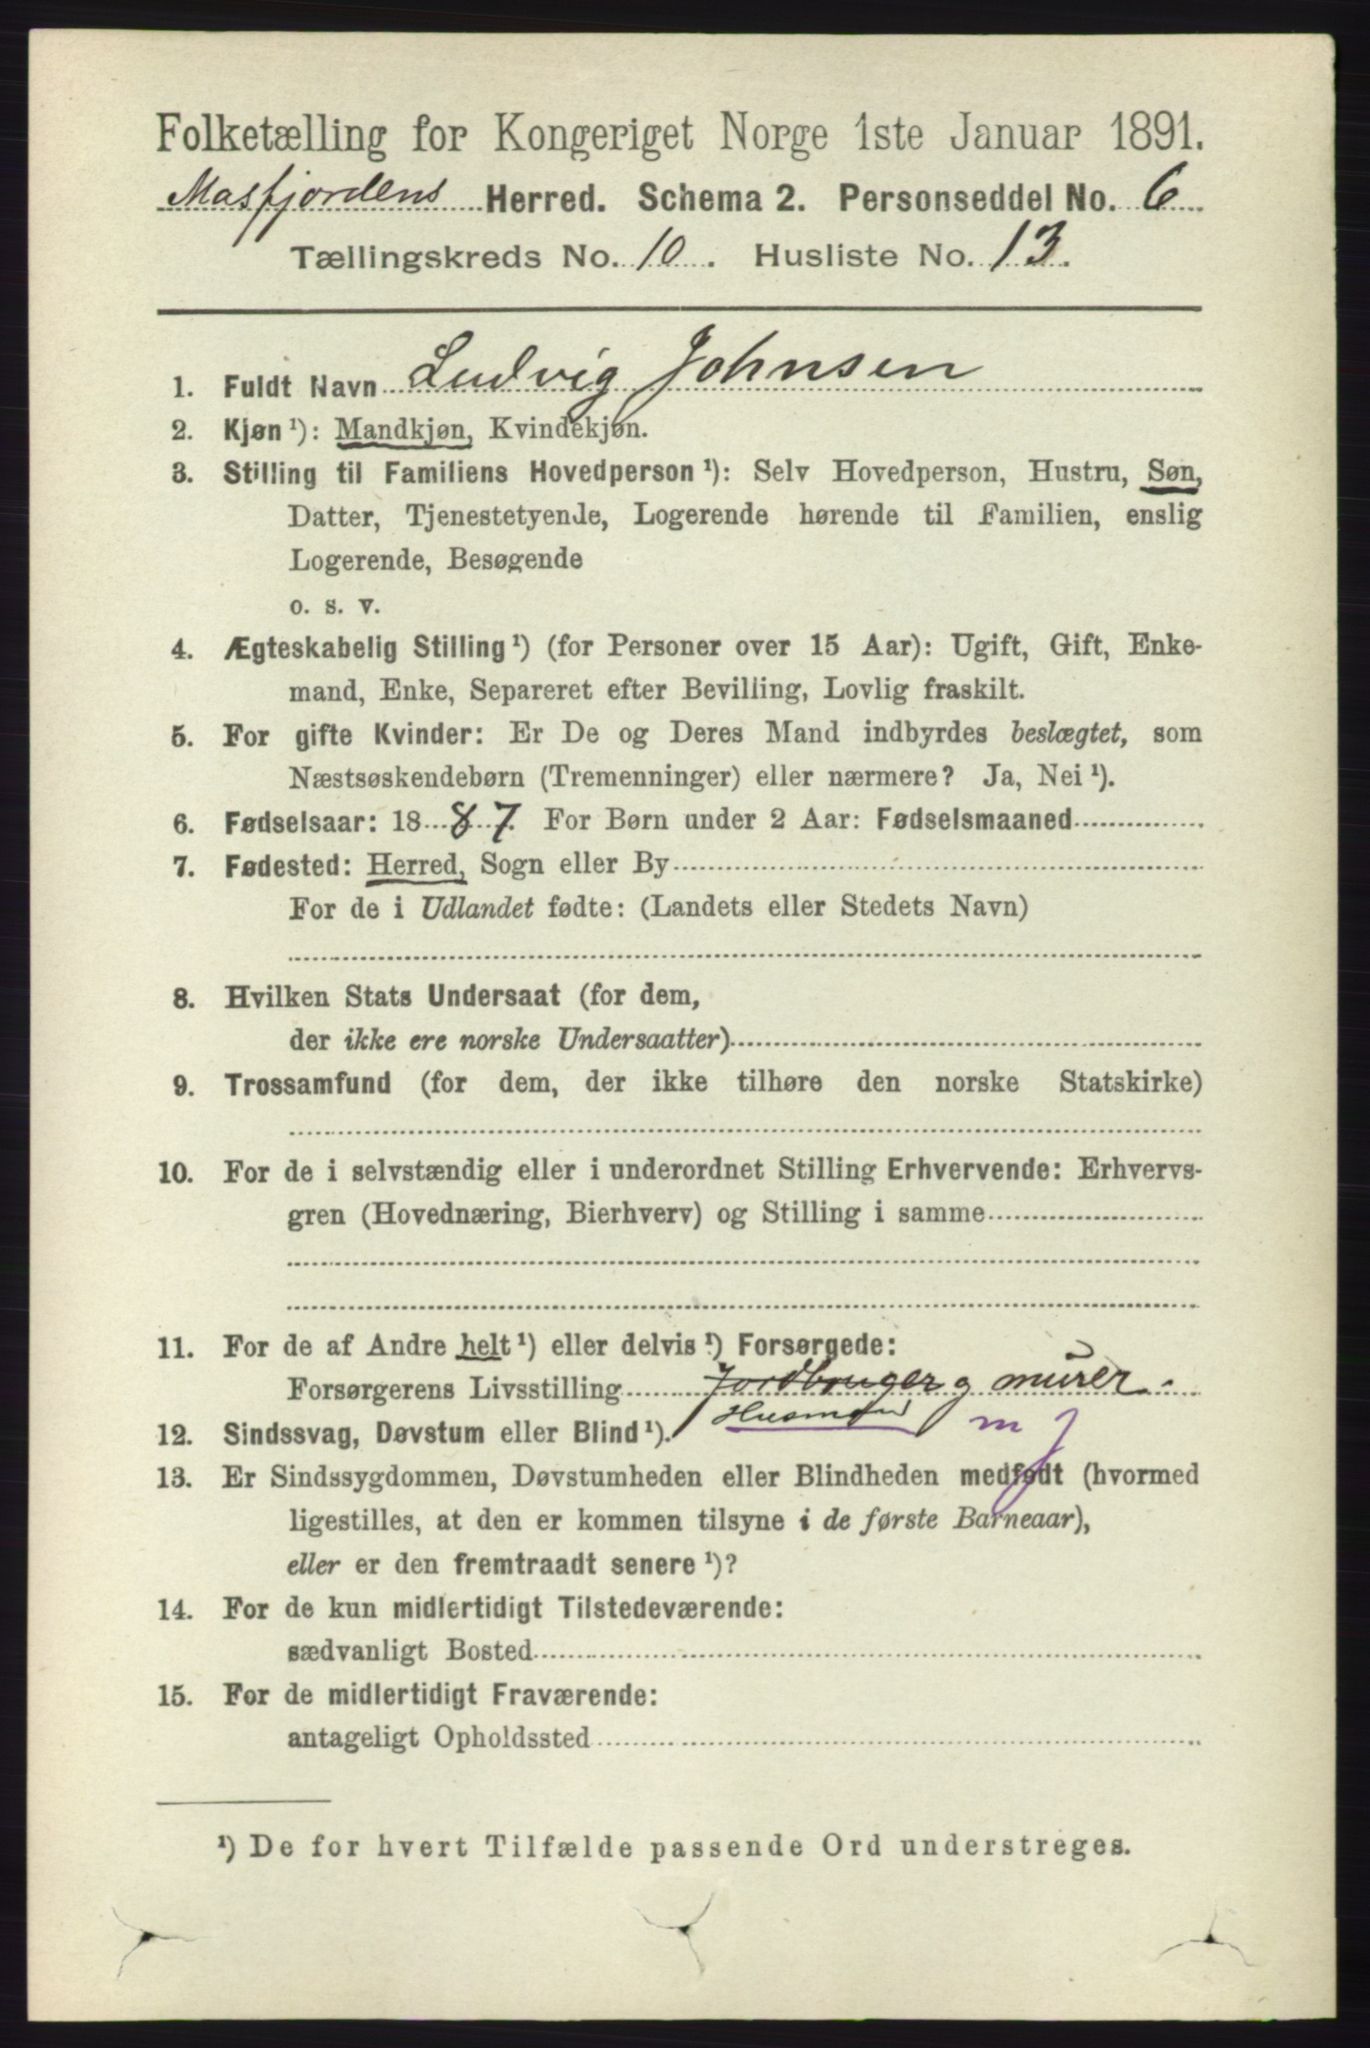 Folketælling for Kongeriget Norge 1ste Januar 1891.
Masfjordens Herred. Schema 2. Personseddel No. 6
Tællingskreds No. 10. Husliste No. 13.
1. Fuldt Navn Ludvig Johnsen
2. Kjøn ¹): Mandkjøn, Kvindekjøn.
3. Stilling til Familiens Hovedperson ¹): Selv Hovedperson, Hustru, Søn,
Datter, Tjenestetyende, Logerende hørende til Familien, enslig
Logerende, Besøgende
o. s. v.
4. Ægteskabelig Stilling ¹) (for Personer over 15 Aar): Ugift, Gift, Enke-
mand, Enke, Separeret efter Bevilling, Lovlig fraskilt.
5. For gifte Kvinder: Er De og Deres Mand indbyrdes beslægtet, som
Næstsøskendebørn (Tremenninger) eller nærmere? Ja, Nei ¹).
6. Fødselsaar: 1887. For Børn under 2 Aar: Fødselsmaaned
7. Fødested: Herred, Sogn eller By
For de i Udlandet fødte: (Landets eller Stedets Navn)
8. Hvilken Stats Undersaat (for dem,
der ikke ere norske Undersaatter)
9. Trossamfund (for dem, der ikke tilhøre den norske Statskirke)
10. For de i selvstændig eller i underordnet Stilling Erhvervende: Erhvervs-
gren (Hovednæring, Bierhverv) og Stilling i samme
11. For de af Andre helt ¹) eller delvis ¹) Forsørgede:
Forsørgerens Livsstilling Jordbruger g murer.
Husmand m J
12. Sindssvag, Døvstum eller Blind ¹).
13. Er Sindssygdommen, Døvstumheden eller Blindheden medfødt (hvormed
ligestilles, at den er kommen tilsyne i de første Barneaar),
eller er den fremtraadt senere ¹)?
14. For de kun midlertidigt Tilstedeværende:
sædvanligt Bosted
15. For de midlertidigt Fraværende:
antageligt Opholdssted
¹) De for hvert Tilfælde passende Ord understreges.